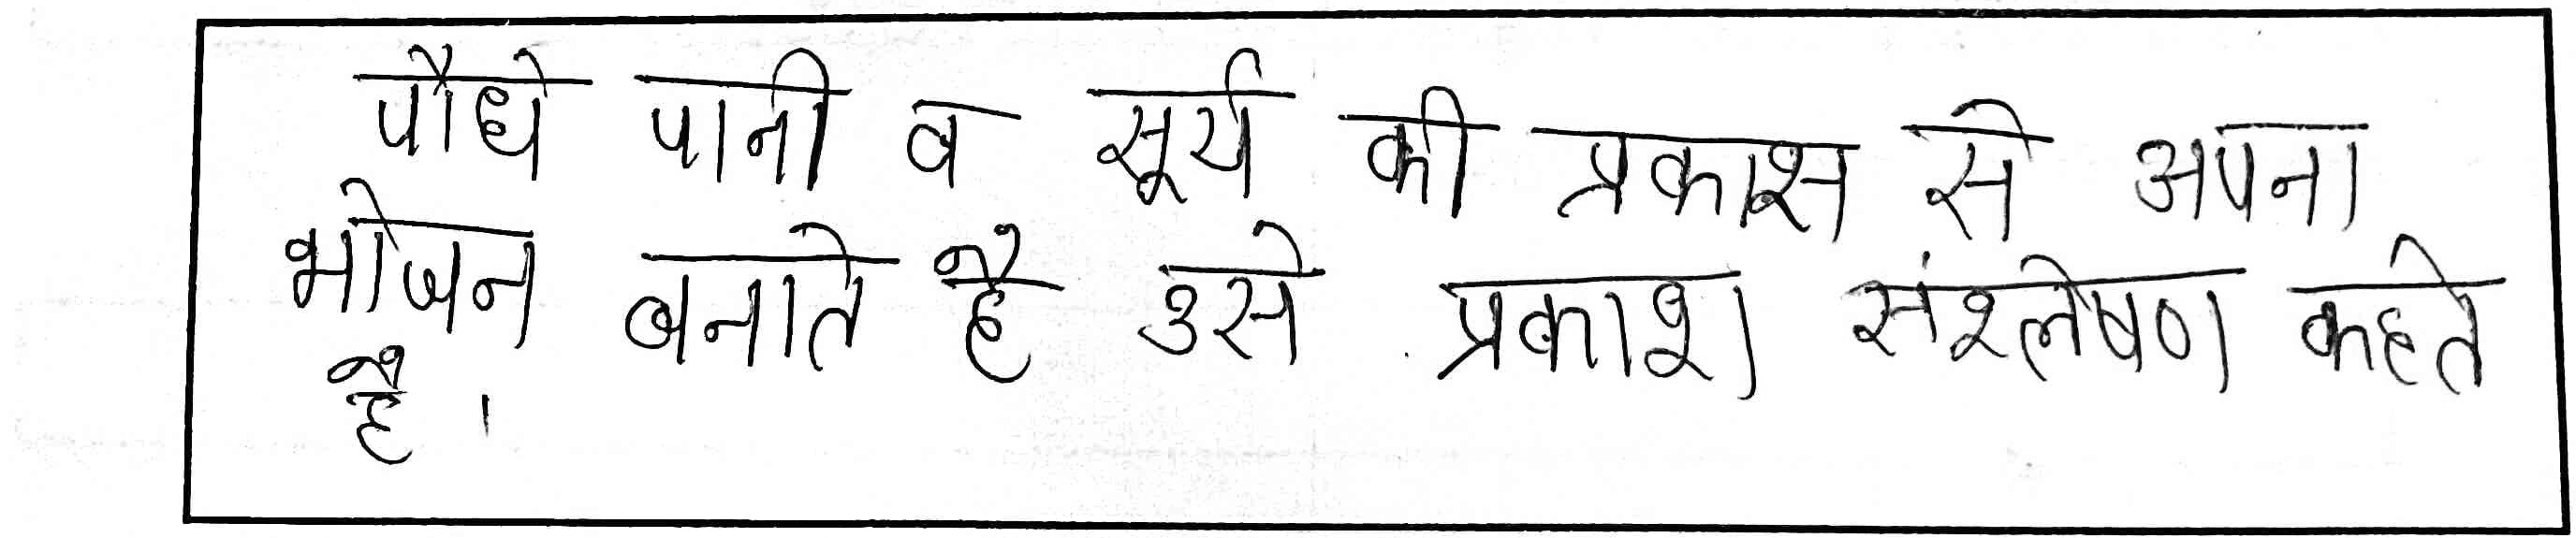 पौधे पानी व सूर्य की प्रकाश से अपना
भोजन बनाते है उसे प्रकाश संश्लेषण कहते
है।